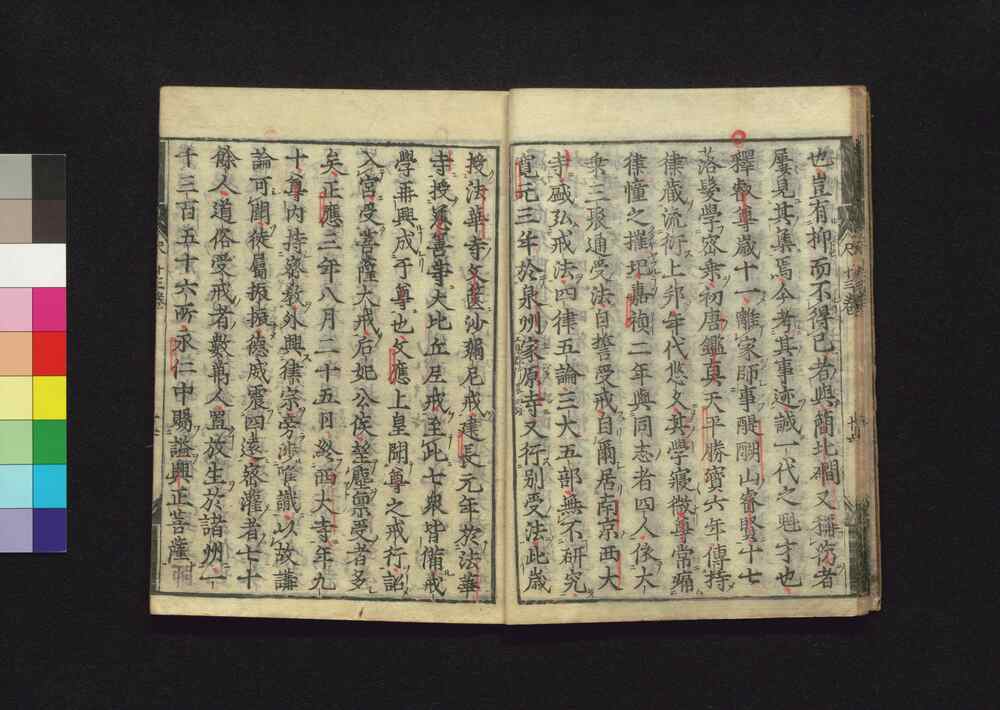 也豈有抑而不得已者與簡北磵又稱傍者
屢見其集焉今考其事迹誠一代之魁才也
釋叡尊歲十一離家師事醍醐山睿賢十七
落髮學密乘初唐鑑真天平勝寶六年傳持
律藏流衍上邦年代悠久其學寢微尊常痛
律幢之摧圮嘉禎二年與同志者四人依大
乘三聚通受法自誓受戒自爾居南京西大
寺盛弘戒法四律五論三大五部無不研究
寬元三年於泉州家原寺又行別受法此歲
授法華寺文篋沙彌尼戒建長元年於法華
寺授慈善等大比丘尼戒至此七衆皆備戒
學再興成于尊也文應上皇聞尊之戒行詔
入宮受菩薩大戒后妃公侯望塵稟受者多
矣正應三年八月二十五日終西大寺年九
十尊內持密教外興律宗旁涉唯識以故講
論可聞徒屬振振德威震四遠密灌者七十
餘人道俗受戒者數萬人置放生於諸州一
千三百五十六所永仁中賜謚興正菩薩